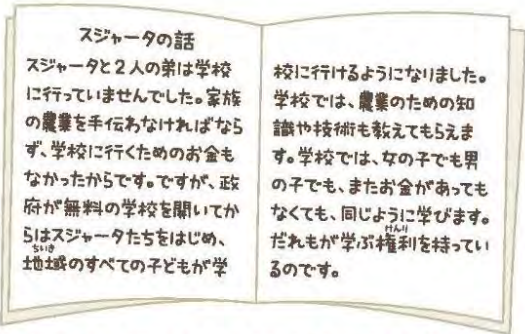 スジャータの話
スジャータと2人の弟は学校
に行っていませんでした。家族
の農業を手伝わなければなら
ず、学校に行くためのお金も
なかったからです。ですが、政
府が無料の学校を開いてか
らはスジャータたちをはじめ、
ちいき
地域のすべての子どもが学
校に行けるようになりました。
学校では、農業のための知
識や技術も教えてもらえま
す。学校では、女の子でも男
の子でも、またお金があっても
なくても、同じように学びます。
けんり
だれもが学ぶ権利を持ってい
るのです。